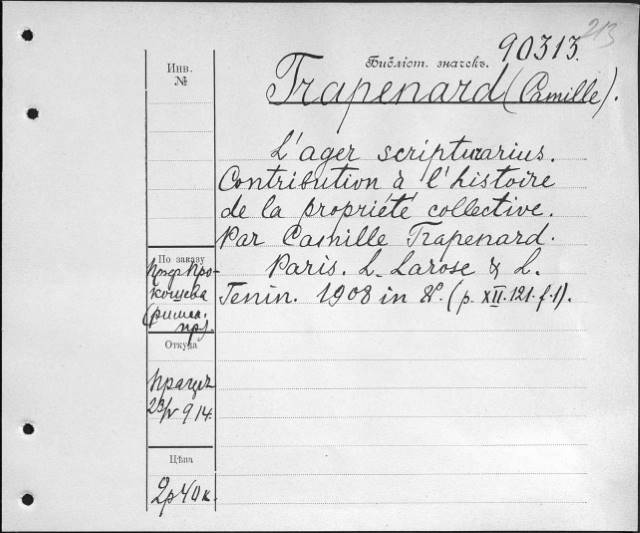 213
90313.
Библіот. значекъ.
Инв.
№
Trapenard (Camille).
L'ager scripturarius.
Contribution à l'histoire
de la propriété collective.
Par Camille Trapenard.
Paris. L. Larose & L.
Tenin. 1908 in 8º. (p. XII. 121. f. 1).
По заказу
Проф. Про-
кошева
(римск.
пр.)
Откуда
23/IV 914.
Цѣна
2р 40к.